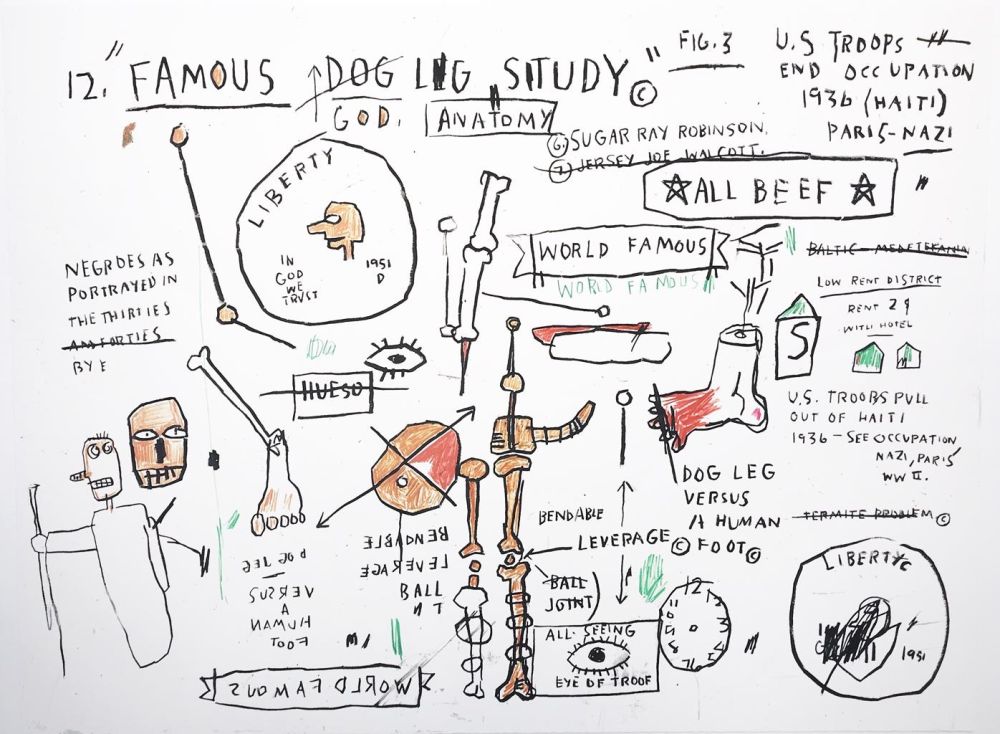 12. "FAMOUS DOG LEG STUDY" ©
FIG. 3
GOD.
ANATOMY
U.S TROOPS
END OCCUPATION
1936 (HAITI)
PARIS-NAZI
6. SUGAR RAY ROBINSON.
7. JERSEY JOE WALCOTT.
ALL BEEF
LIBERTY
IN
GOD
WE
TRUST
1951
D
WORLD FAMOUS
WORLD FAMOUS
LOW RENT DISTRICT
RENT 29
HOTEL
S
NEGROES AS
PORTRAYED IN
THE THIRTIES
AND FORTIES
BY E
HUESO
U.S. TROOBS PULL
OUT OF HAITI
1936 - SEE OCCUPATION
NAZI, PARIS
WW II.
TERMITE PROBLEM ©
DOG LEG
VERSUS
A HUMAN
© FOOT ©
BENDABLE
LEVERAGE
BALL
JOINT)
BENDABLE
LEVERAGE
BALL
NT
DOG LEG
VERSUS
A
HUMAN
FOOT
WORLD FAMOUS
ALL-SEEING
EYE OF TROOF
12
LIBERTY
1951